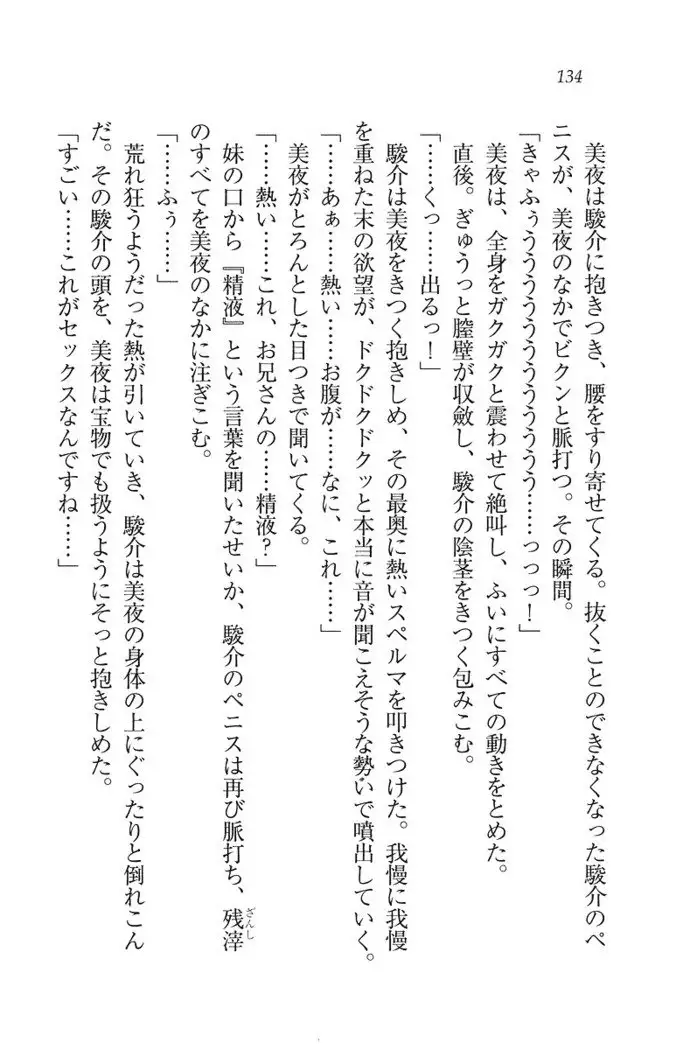 134
美夜は駿介に抱きつき、腰をすり寄せてくる。抜くことのできなくなった駿介のペ
ニスが、美夜のなかでビクンと脈打つ。その瞬間。
「きゃふぅうううううううううううう……っっっ！」
美夜は、全身をガクガクと震わせて絶叫し、ふいにすべての動きをとめた。
直後。ぎゅうっと膣壁が収斂し、駿介の陰茎をきつく包みこむ。
「……くっ……出るっ！」
駿介は美夜をきつく抱きしめ、その最奥に熱いスペルマを叩きつけた。我慢に我慢
を重ねた末の欲望が、ドクドクドクッと本当に音が聞こえそうな勢いで噴出していく。
「……あぁ……熱い……お腹が……なに、これ……」
美夜がとろんとした目つきで聞いてくる。
「……熱い……これ、お兄さんの……精液？」
妹の口から『精液』という言葉を聞いたせいか、駿介のペニスは再び脈打ち、残滓
のすべてを美夜のなかに注ぎこむ。
「……ふぅ……」
荒れ狂うようだった熱が引いていき、駿介は美夜の身体の上にぐったりと倒れこん
だ。その駿介の頭を、美夜は宝物でも扱うようにそっと抱きしめた。
「すごい……これがセックスなんですね……」